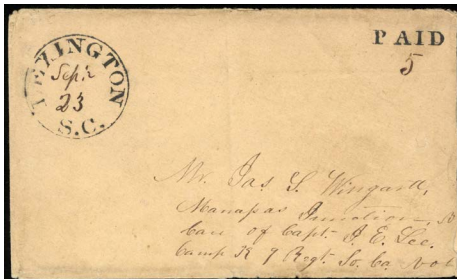 PAID
5
LEXINGTON
Sept
23
S.C.
Mr. Jas S. Wingard,
Manapas Junction,
Care of Capt. J. E. Lee.
Camp K 9 Regt. So. Ca Vol